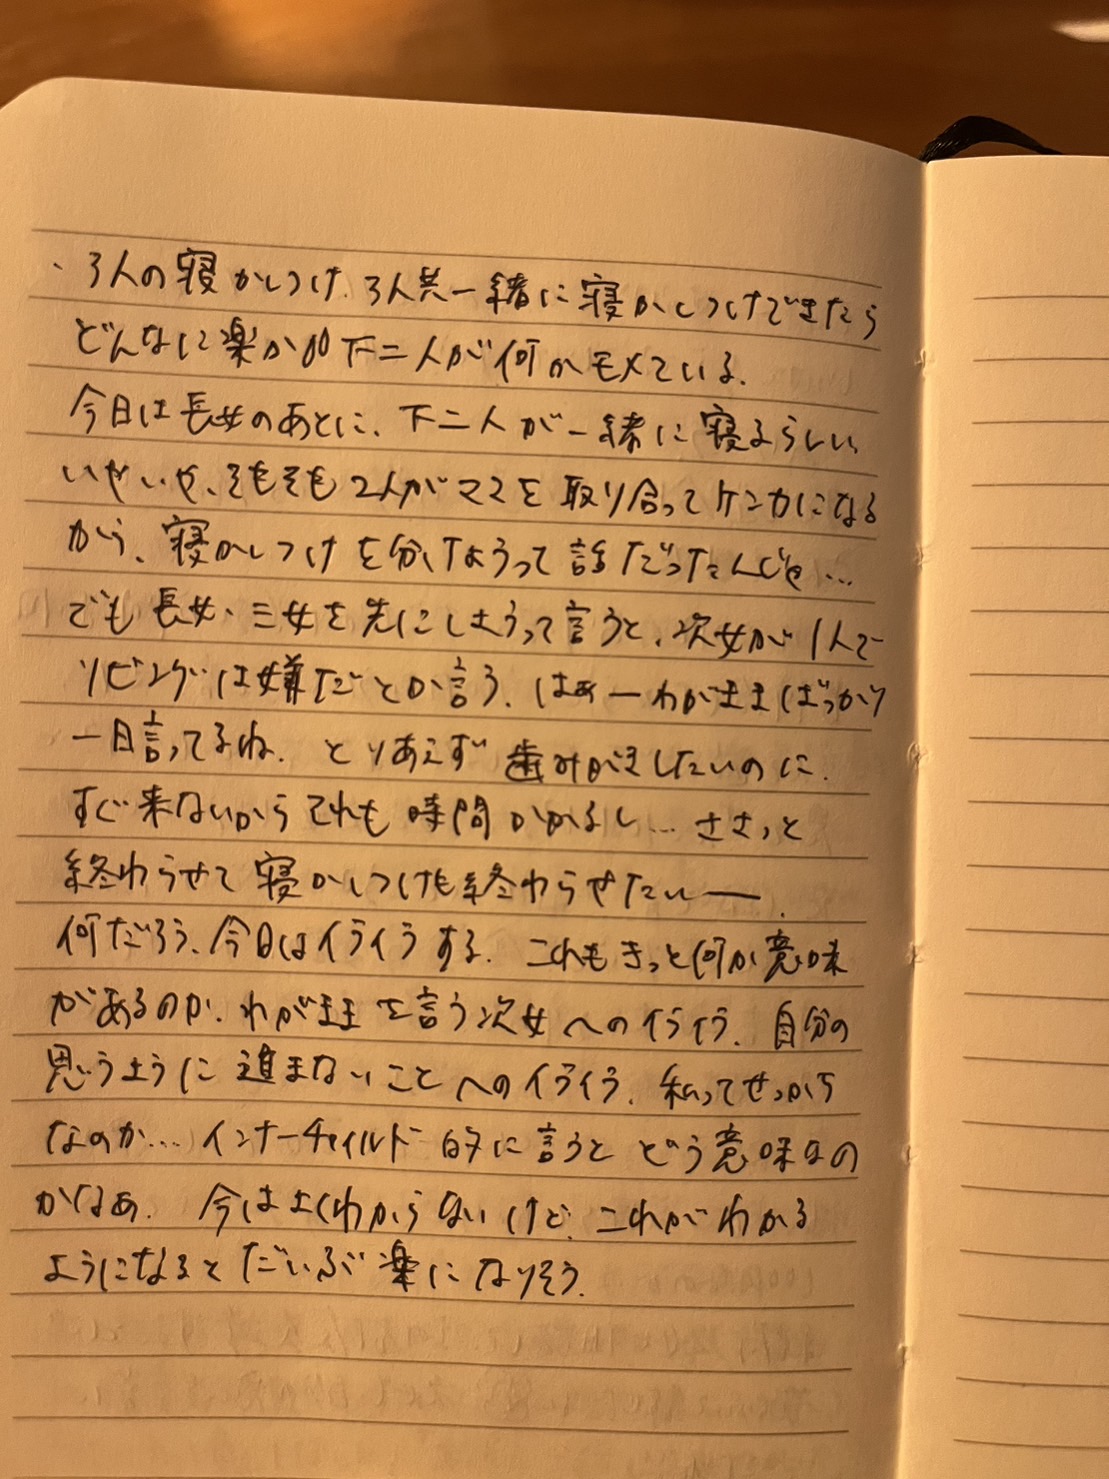 、3人の寝かしつけ、3人共一緒に寝かしつけできたら
どんなに楽か 下二人が何かモメている.
今日は長女のあとに、下二人が一緒に寝るらしい、
いやいや、そもそも2人がママを取り合ってケンカになる
から、寝かしつけを分けようって話だったんじゃ…
でも長女、三女を先にしようって言うと、次女が1人で
リビングは嫌だとか言う. はぁーわがままばっかり
一日言ってるね. とりあえず歯みがきしたいのに.
すぐ来ないからそれも時間かかるし… ささっと
終わらせて寝かしつけも終わらせたいー.
何だろう、今日はイライラする. これもきっと何か意味
があるのか. わがままを言う次女へのイライラ. 自分の
思うように進まないことへのイライラ. 私ってせっかち
なのか… インナーチャイルド的に言うとどう意味なの
かなぁ. 今はよくわからないけど、これがわかる
ようになるとだいぶ楽になりそう.